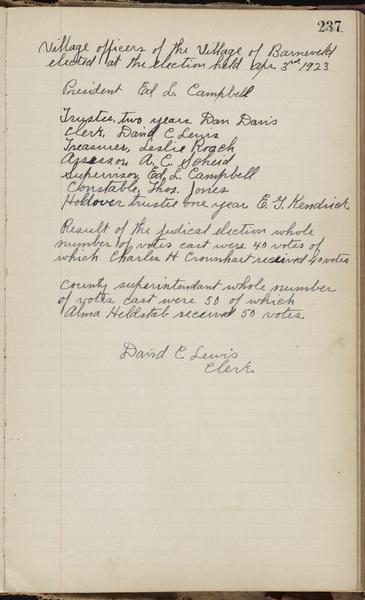 237
Village officers of the Village of Barneveld
elected at the election held Apr 3rd 1923
President Ed L. Campbell
Trustee, two years Dan Davis
Clerk, David C Lewis
Treasurer, Leslie Roach
Assessor A. C. Scheid
Supervisor Ed L. Campbell
Constable, Thos. Jones
Holdover trustee one year E. G. Kendrick
Result of the judical election whole
number of votes cast were 40 votes of
which Charles H Crownhart received 40 votes
County superintendant whole number
of votes cast were 50 of which
Alma Hellstab received 50 votes
David C Lewis
Clerk